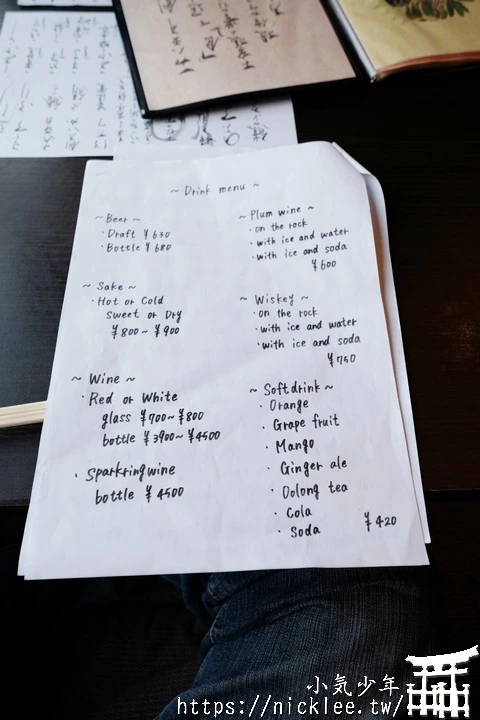 ~ Drink menu ~
~ Beer ~
・Draft ¥630
・Bottle ¥680
~ Sake ~
・Hot or Cold
Sweet or Dry
¥800~ ¥900
~ Wine ~
・Red or White
glass ¥700~¥800
bottle ¥3900~¥4500
・Sparkring wine
bottle ¥4500
~ Plum wine ~
・on the rock
・with ice and water
・with ice and soda
¥600
~ Wiskey ~
・on the rock
・with ice and water
・with ice and soda
¥750
~ Softdrink ~
・Orange
・Grape fruit
・Mango
・Ginger ale
・Oolong tea
・Cola
・Soda ¥420
小気少年
https://nicklee.tw/